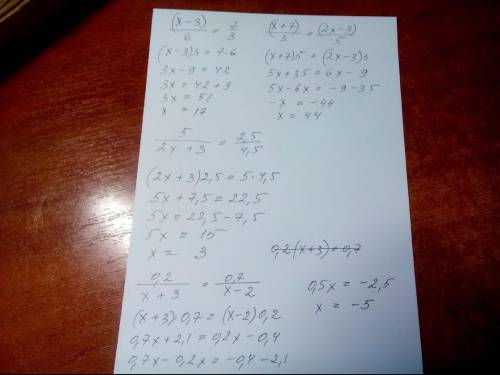 (x-3)/6 = 7/3
(x-3)3 = 7·6
3x-9 = 42
3x = 42+9
3x = 51
x = 17
(x+7)/3 = (2x-3)/5
(x+7)5 = (2x-3)3
5x+35 = 6x-9
5x-6x = -9-35
-x = -44
x = 44
5/(2x+3) = 2,5/4,5
(2x+3)2,5 = 5·4,5
5x+7,5 = 22,5
5x = 22,5-7,5
5x = 15
x = 3
0,2(x+3)=0,7
0,2/(x+3) = 0,7/(x-2)
(x+3)·0,7 = (x-2)0,2
0,7x+2,1 = 0,2x-0,4
0,7x-0,2x = -0,4-2,1
0,5x = -2,5
x = -5